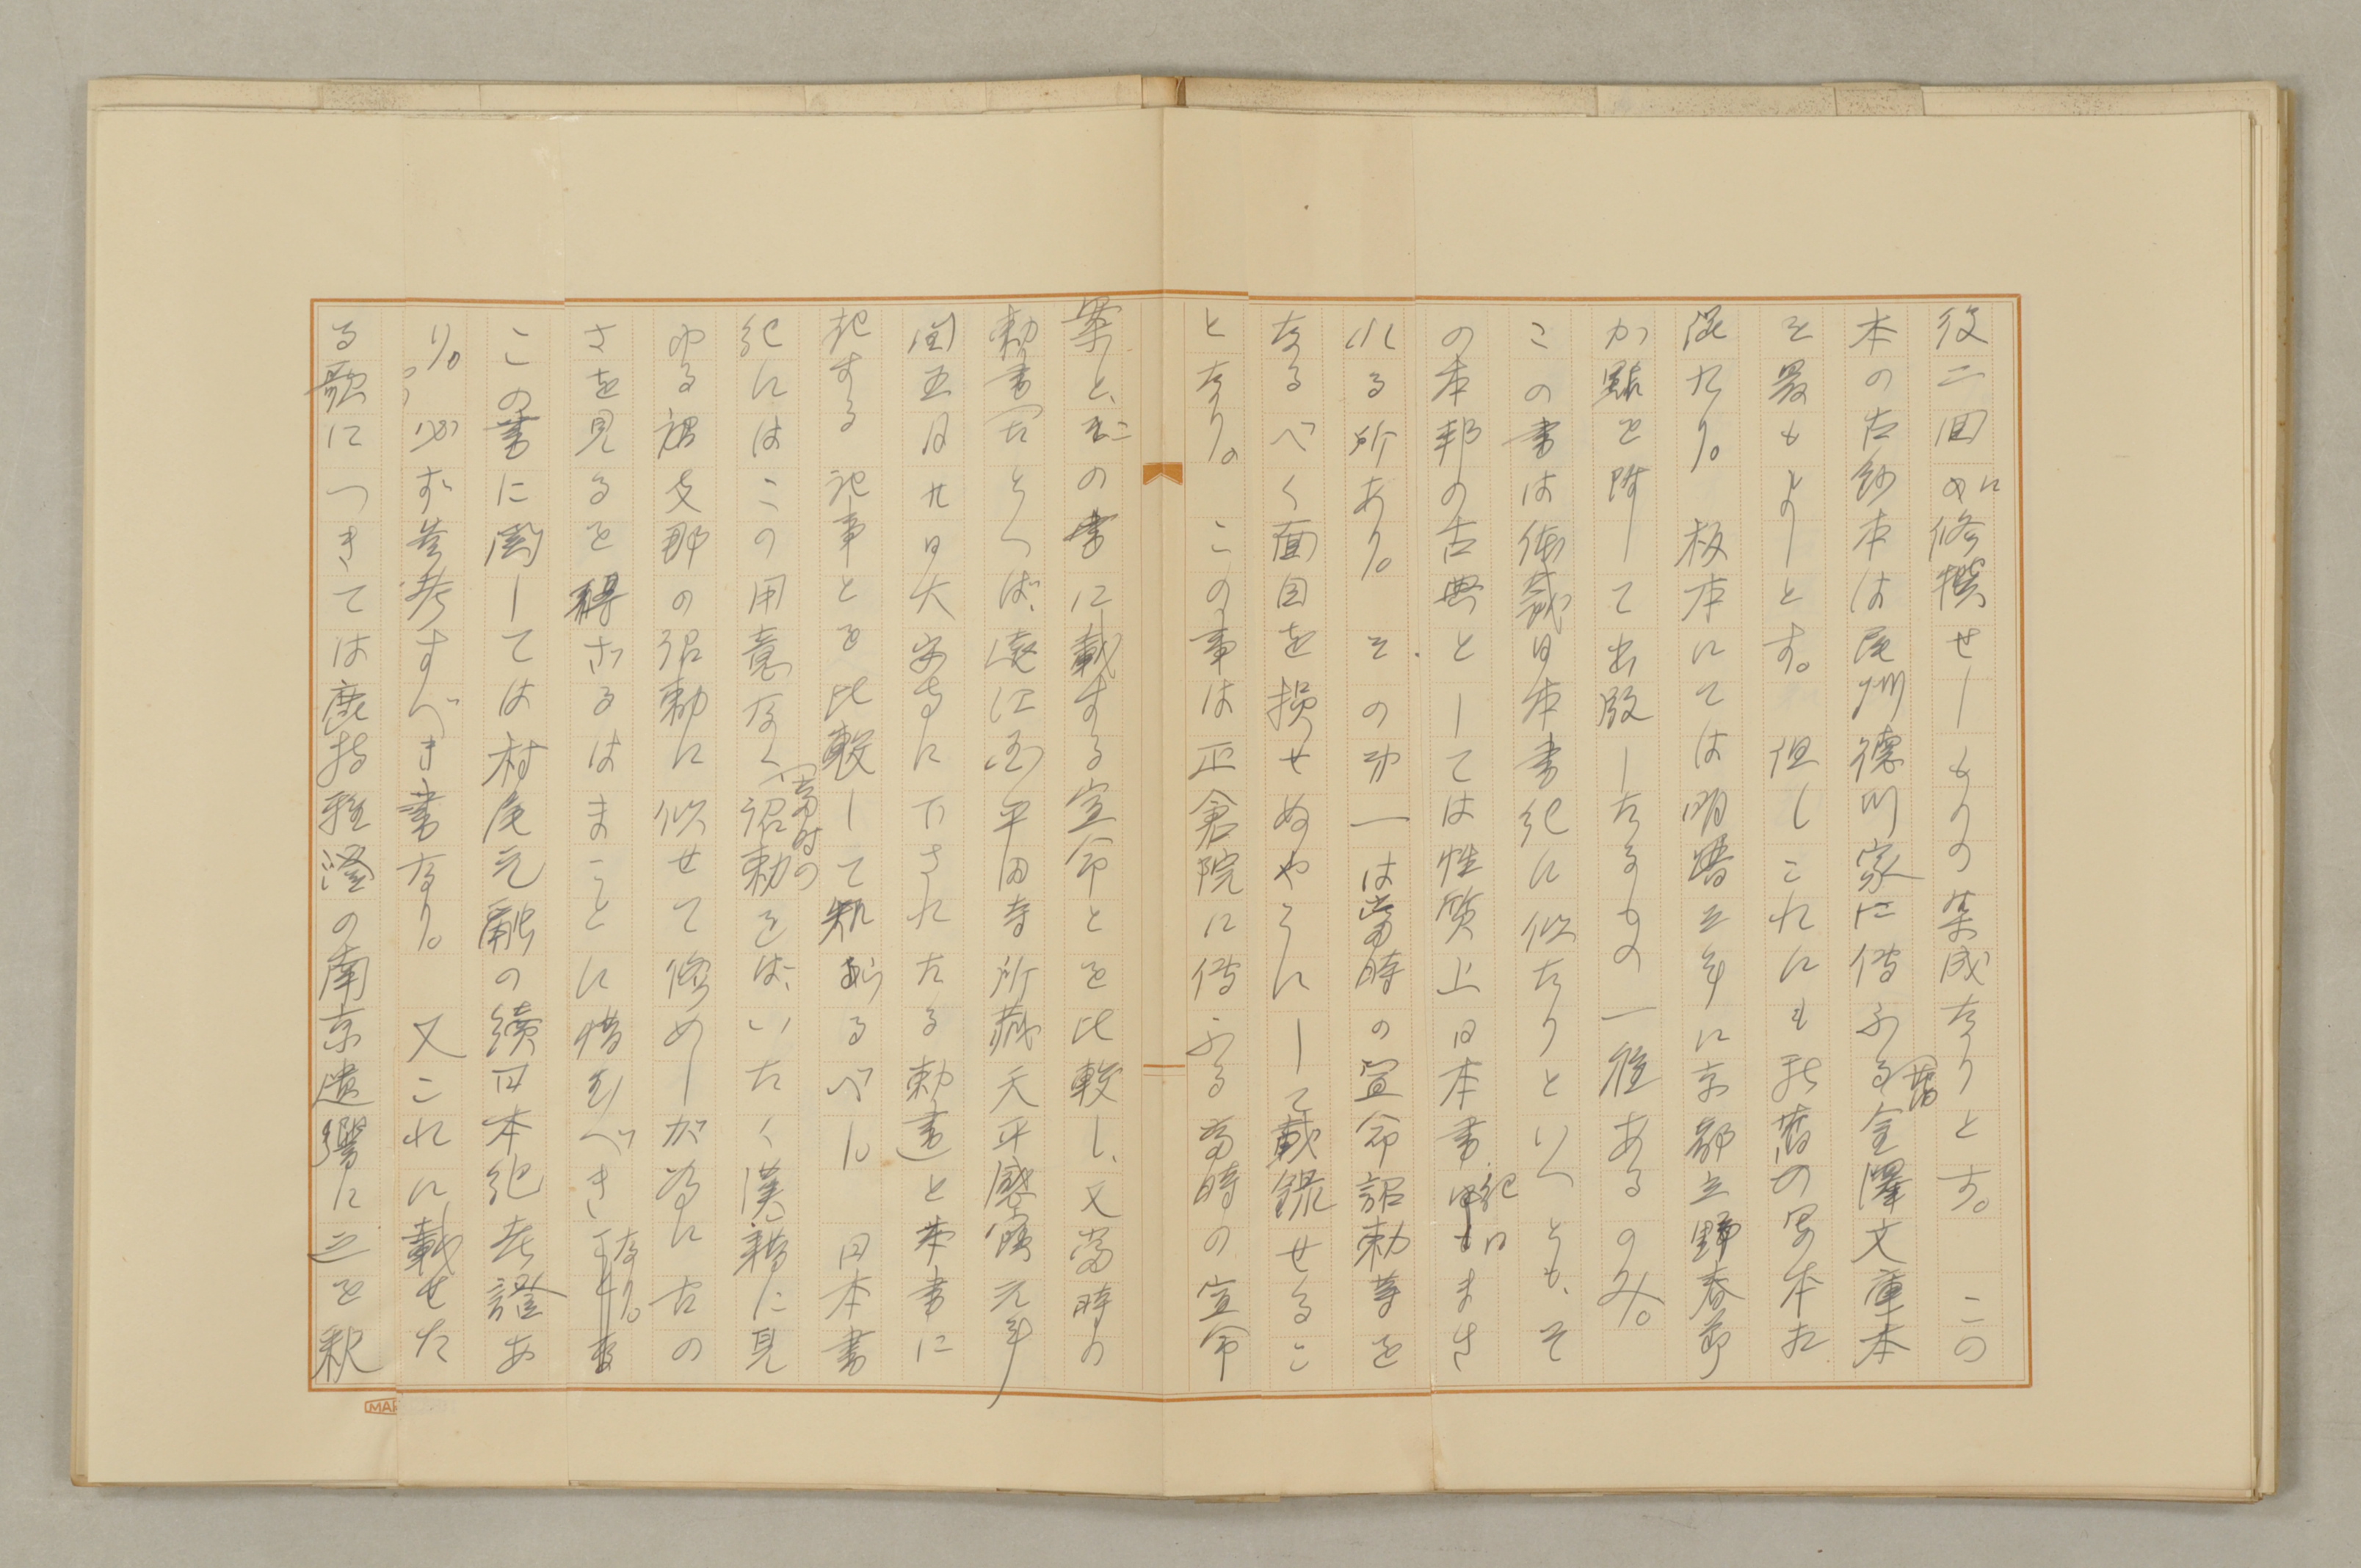 後二回に修撰せしものの集成なりとす。 この
本の古鈔本は尾州徳川家に傳ふる舊金澤文庫本
を最もよしとす。 但しこれにも新舊の写本
混たり。 板本にては明暦三年に京都立野春節
が點を附して出版したるもの一種あるのみ。
この書は体裁日本書紀に似たりといへども、そ
の本邦の古典としては性質上日本書紀にまさ
れる所あり。 その功一は當時の宣命詔勅等を
なるべく面目を損せぬやうにして載録せるこ
となり。 この事は正倉院に傳ふる當時の宣命
案と、この書に載する宣命とを比較し、又當時の
勅書(たとへば、遠江国平田寺所藏天平感寳元年
閏五月廿日大安寺に下されたる勅書)と本書に
記する記事とを比較して知らるべし 日本書
紀にはこの用意なく(當時の)詔勅をば、いたく漢籍に見
ゆる語支那の詔勅に似せて修めしが為に古の
さを見るを得ざるはまことに惜むべきなり。
この書に関しては村尾元融の續日本紀考證あ
り。 必ず参考すべき書なり。 又これに載せた
る歌につきては鹿持雅澄の南京遺響に之を釈